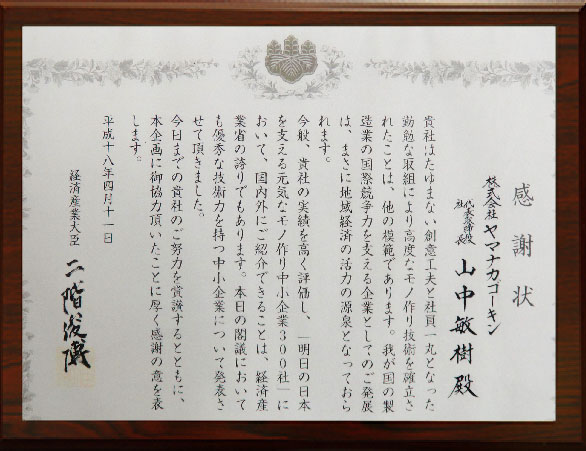 感謝状
株式会社ヤマナカゴーキン
代表取締役
社長
山中敏樹殿
貴社はたゆまない創意工夫と社員一丸となった
勤勉な取組により高度なモノ作り技術を確立さ
れたことは、他の模範であります。我が国の製
造業の国際競争力を支える企業としてのご発展
は、まさに地域経済の活力の源泉となっておら
れます。
今般、貴社の実績を高く評価し、「明日の日本
を支える元気なモノ作り中小企業300社」に
おいて、国内外にご紹介できることは、経済産
業省の誇りでもあります。本日の閣議において
も優秀な技術力を持つ中小企業について発表さ
せて頂きました。
今日までの貴社のご努力を賞讃するとともに、
本企画に御協力頂いたことに厚く感謝の意を表
します。
平成十八年四月十一日
経済産業大臣
二階俊博